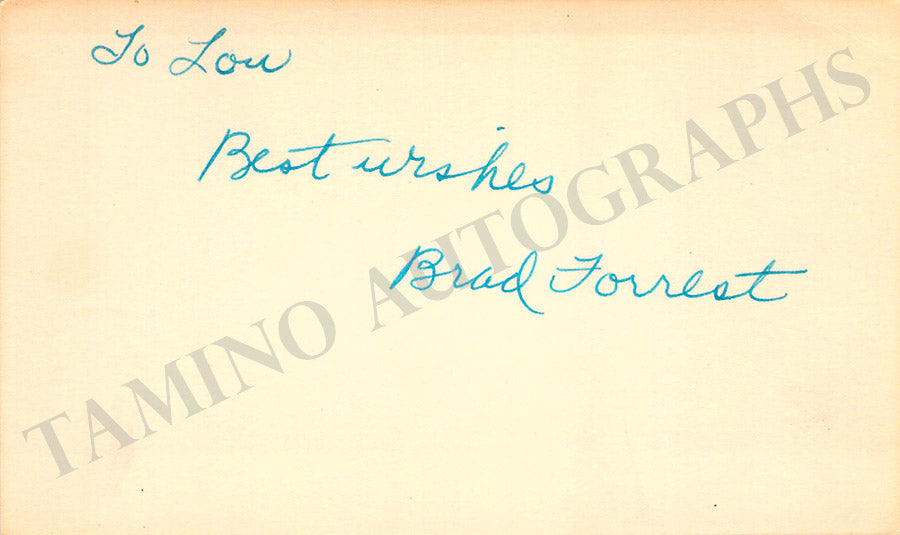 To Lou
Best wishes
Brad Forrest
TAMINO AUTOGRAPHS